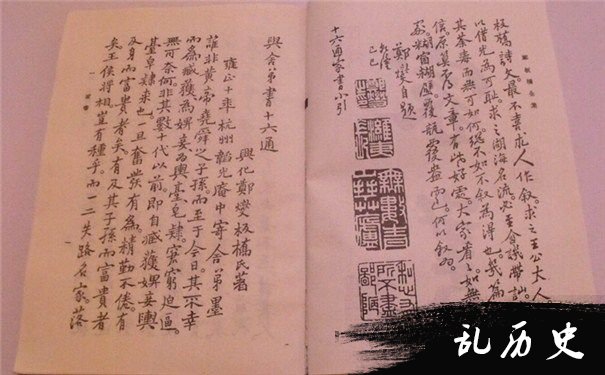 板橋詩文。最不喜求人作叙。求之王公大人。
以借光為可恥。求之湖海名流。必至含譏帶訕。
其荼毒而無可如何。總不如不叙為得也。幾篇
信。原算不得文章。有些好處。大家看看。如無
糊窗糊壁。覆瓿覆盎而已。何以叙為。
鄭燮自題
乾隆
己巳
十六通家書小引
與舍弟書十六通
興化鄭燮板橋氏著
雍正十年杭州韜光庵中寄舍弟墨
誰非黃帝堯舜之子孫。而至于今日。其不幸
而為臧獲。為婢妾。為輿臺皁隸。窘窮迫逼。
無可奈何。非其數十代以前。即自臧獲婢妾輿
臺皁隸來也。一旦奮發有為。精勤不倦。有
及身而富貴者矣。有及其子孫而富貴者
矣。王侯將相豈有種乎。而一二失路名家。落
乱历史